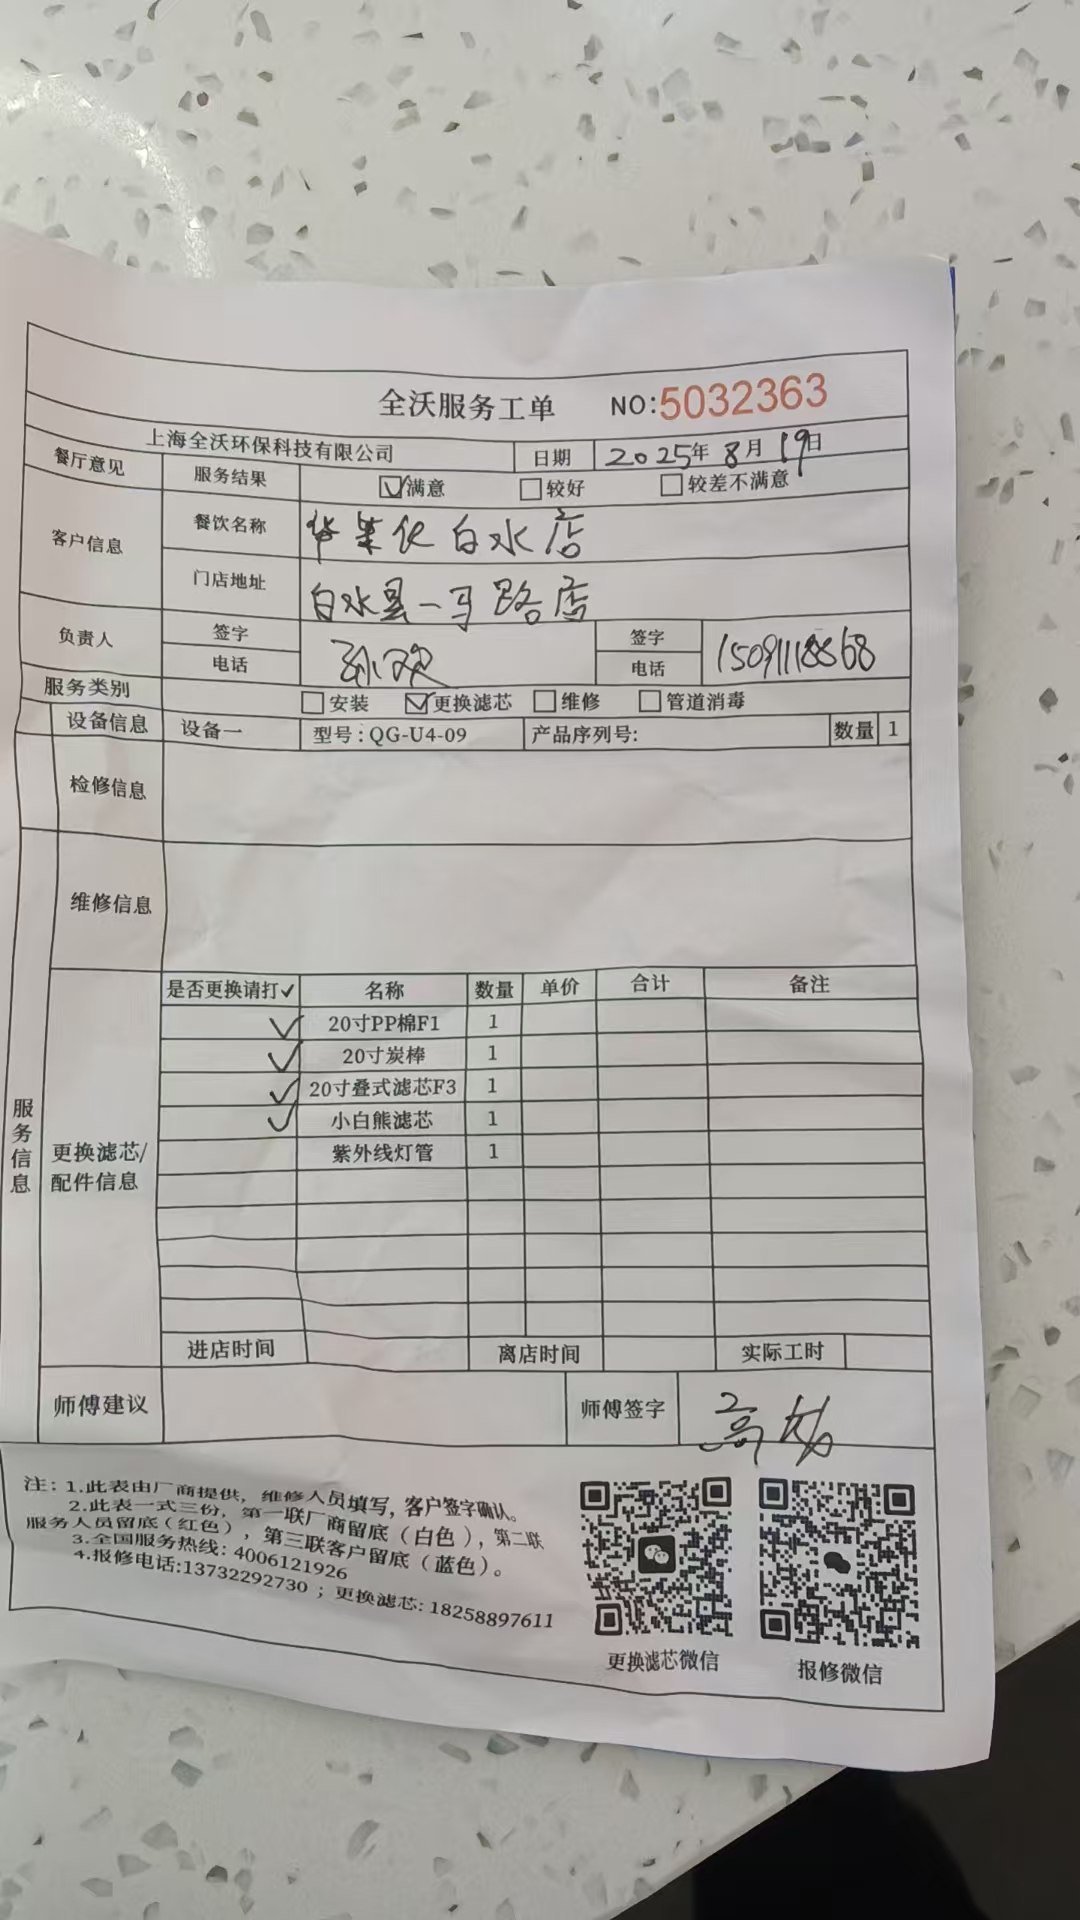 全沃服务工单 NO:5032363
上海全沃环保科技有限公司 日期 2025年8月19日
餐厅意见 服务结果 ☑满意 ☐较好 ☐较差不满意
客户信息 餐饮名称 华莱仕白水店
门店地址 白水县一马路店
负责人 签字 签字
电话 孙欢 电话 15091118868
服务类别 ☐安装 ☑更换滤芯 ☐维修 ☐管道消毒
设备信息 设备一 型号:QG-U4-09 产品序列号: 数量 1
检修信息
维修信息
服务信息
更换滤芯/
配件信息
是否更换请打✓ 名称 数量 单价 合计 备注
✓ 20寸PP棉F1 1
✓ 20寸炭棒 1
✓ 20寸叠式滤芯F3 1
✓ 小白熊滤芯 1
紫外线灯管 1
进店时间 离店时间 实际工时
师傅建议 师傅签字 高
注:1.此表由厂商提供，维修人员填写，客户签字确认。
2.此表一式三份，第一联厂商留底（白色），第二联
服务人员留底（红色），第三联客户留底（蓝色）。
3.全国服务热线: 4006121926
4.报修电话:13732292730 ；更换滤芯: 18258897611
更换滤芯微信 报修微信